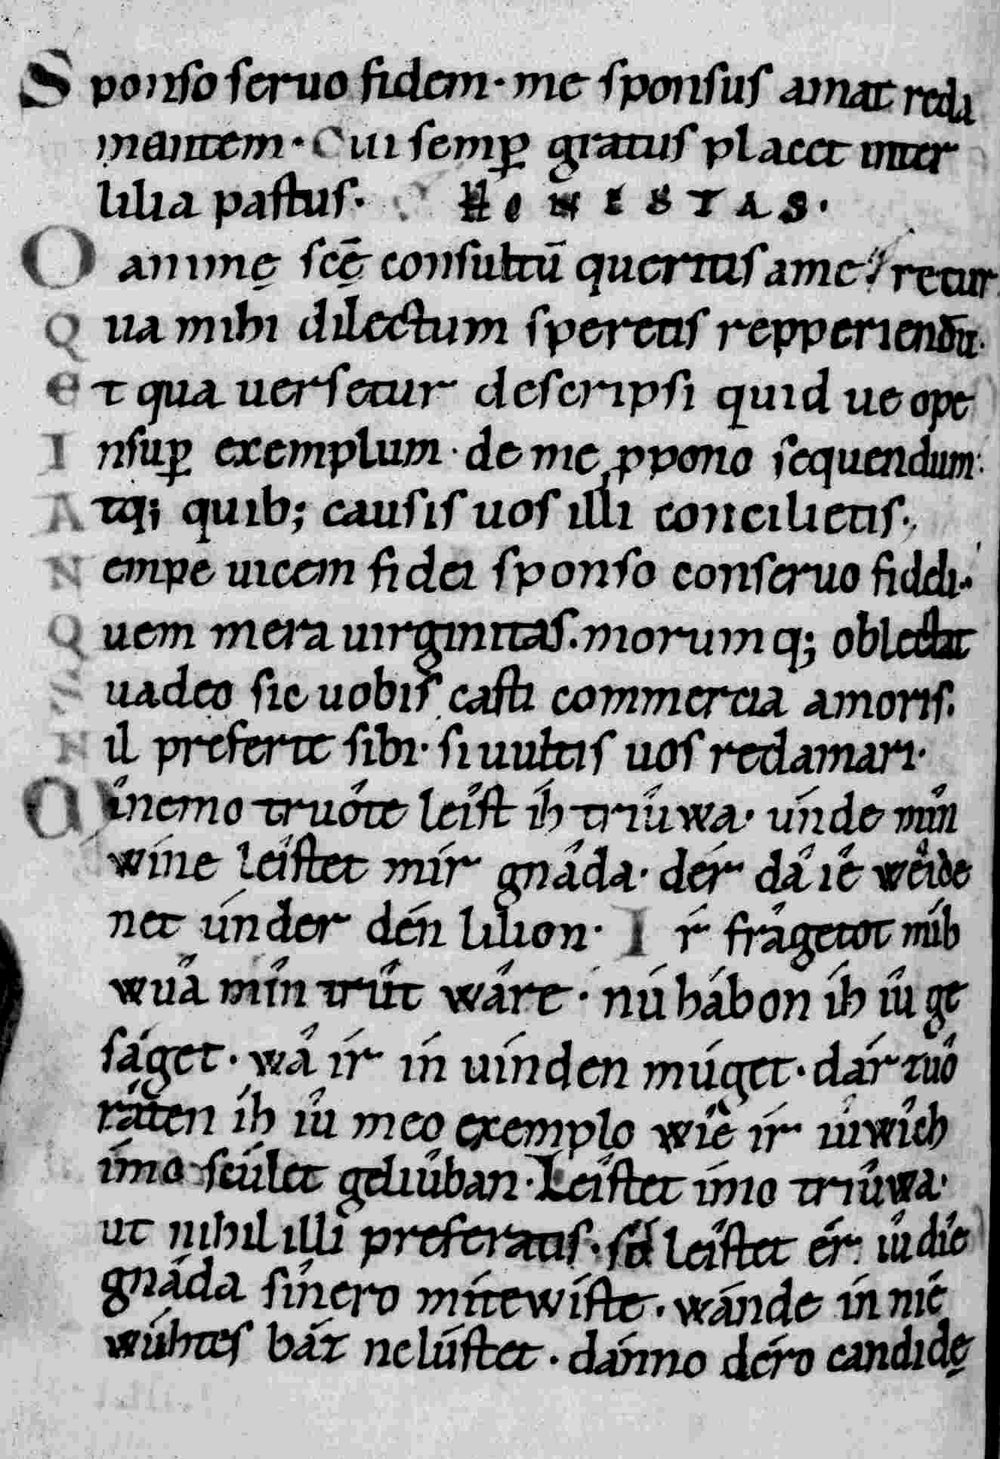 Sponso seruo fidem· me sponsus amat reda
mantem· Cui semꝑ gratus placet inter
lilia pastus· HONESTAS·
O animę scē consultū queritis a me? retur
Qua mihi dilectum speretis repperiendū·
Et qua uersetur descripsi quid ue ope
Insuꝑ exemplum· de me ꝓpono sequendum:
Atq; quib; causis uos illi concilietis·
Nempe uicem fidei sponso conseruo fideli·
Quem mera uirginitas· morumq; oblectat
Suadeo sic uobis casti commercia amoris·
Nil preferte sibi· si uultis uos redamari·
Mı́nemo truôte leı́st ih triûwa· únde mîn
wíne leı́stet mír gnâda· dér dâ ié wêide
net únder dén lilion· Ir frâgetot míh
wuâ mîn trût wâre· nú hábon ih íu ge
sâget· wâ ír ín uínden múget· dár zuô
râten íh íu meo exemplo wiê ír iúwich
ímo scúlet geliúban· Leı́stet ímo triûwa·
ut nihil illi preferatis· sô leı́stet ér íu díe
gnâda sı́nero mítewíste· wánde ín nié
wúhtes báz nelústet· dánno déro candidę